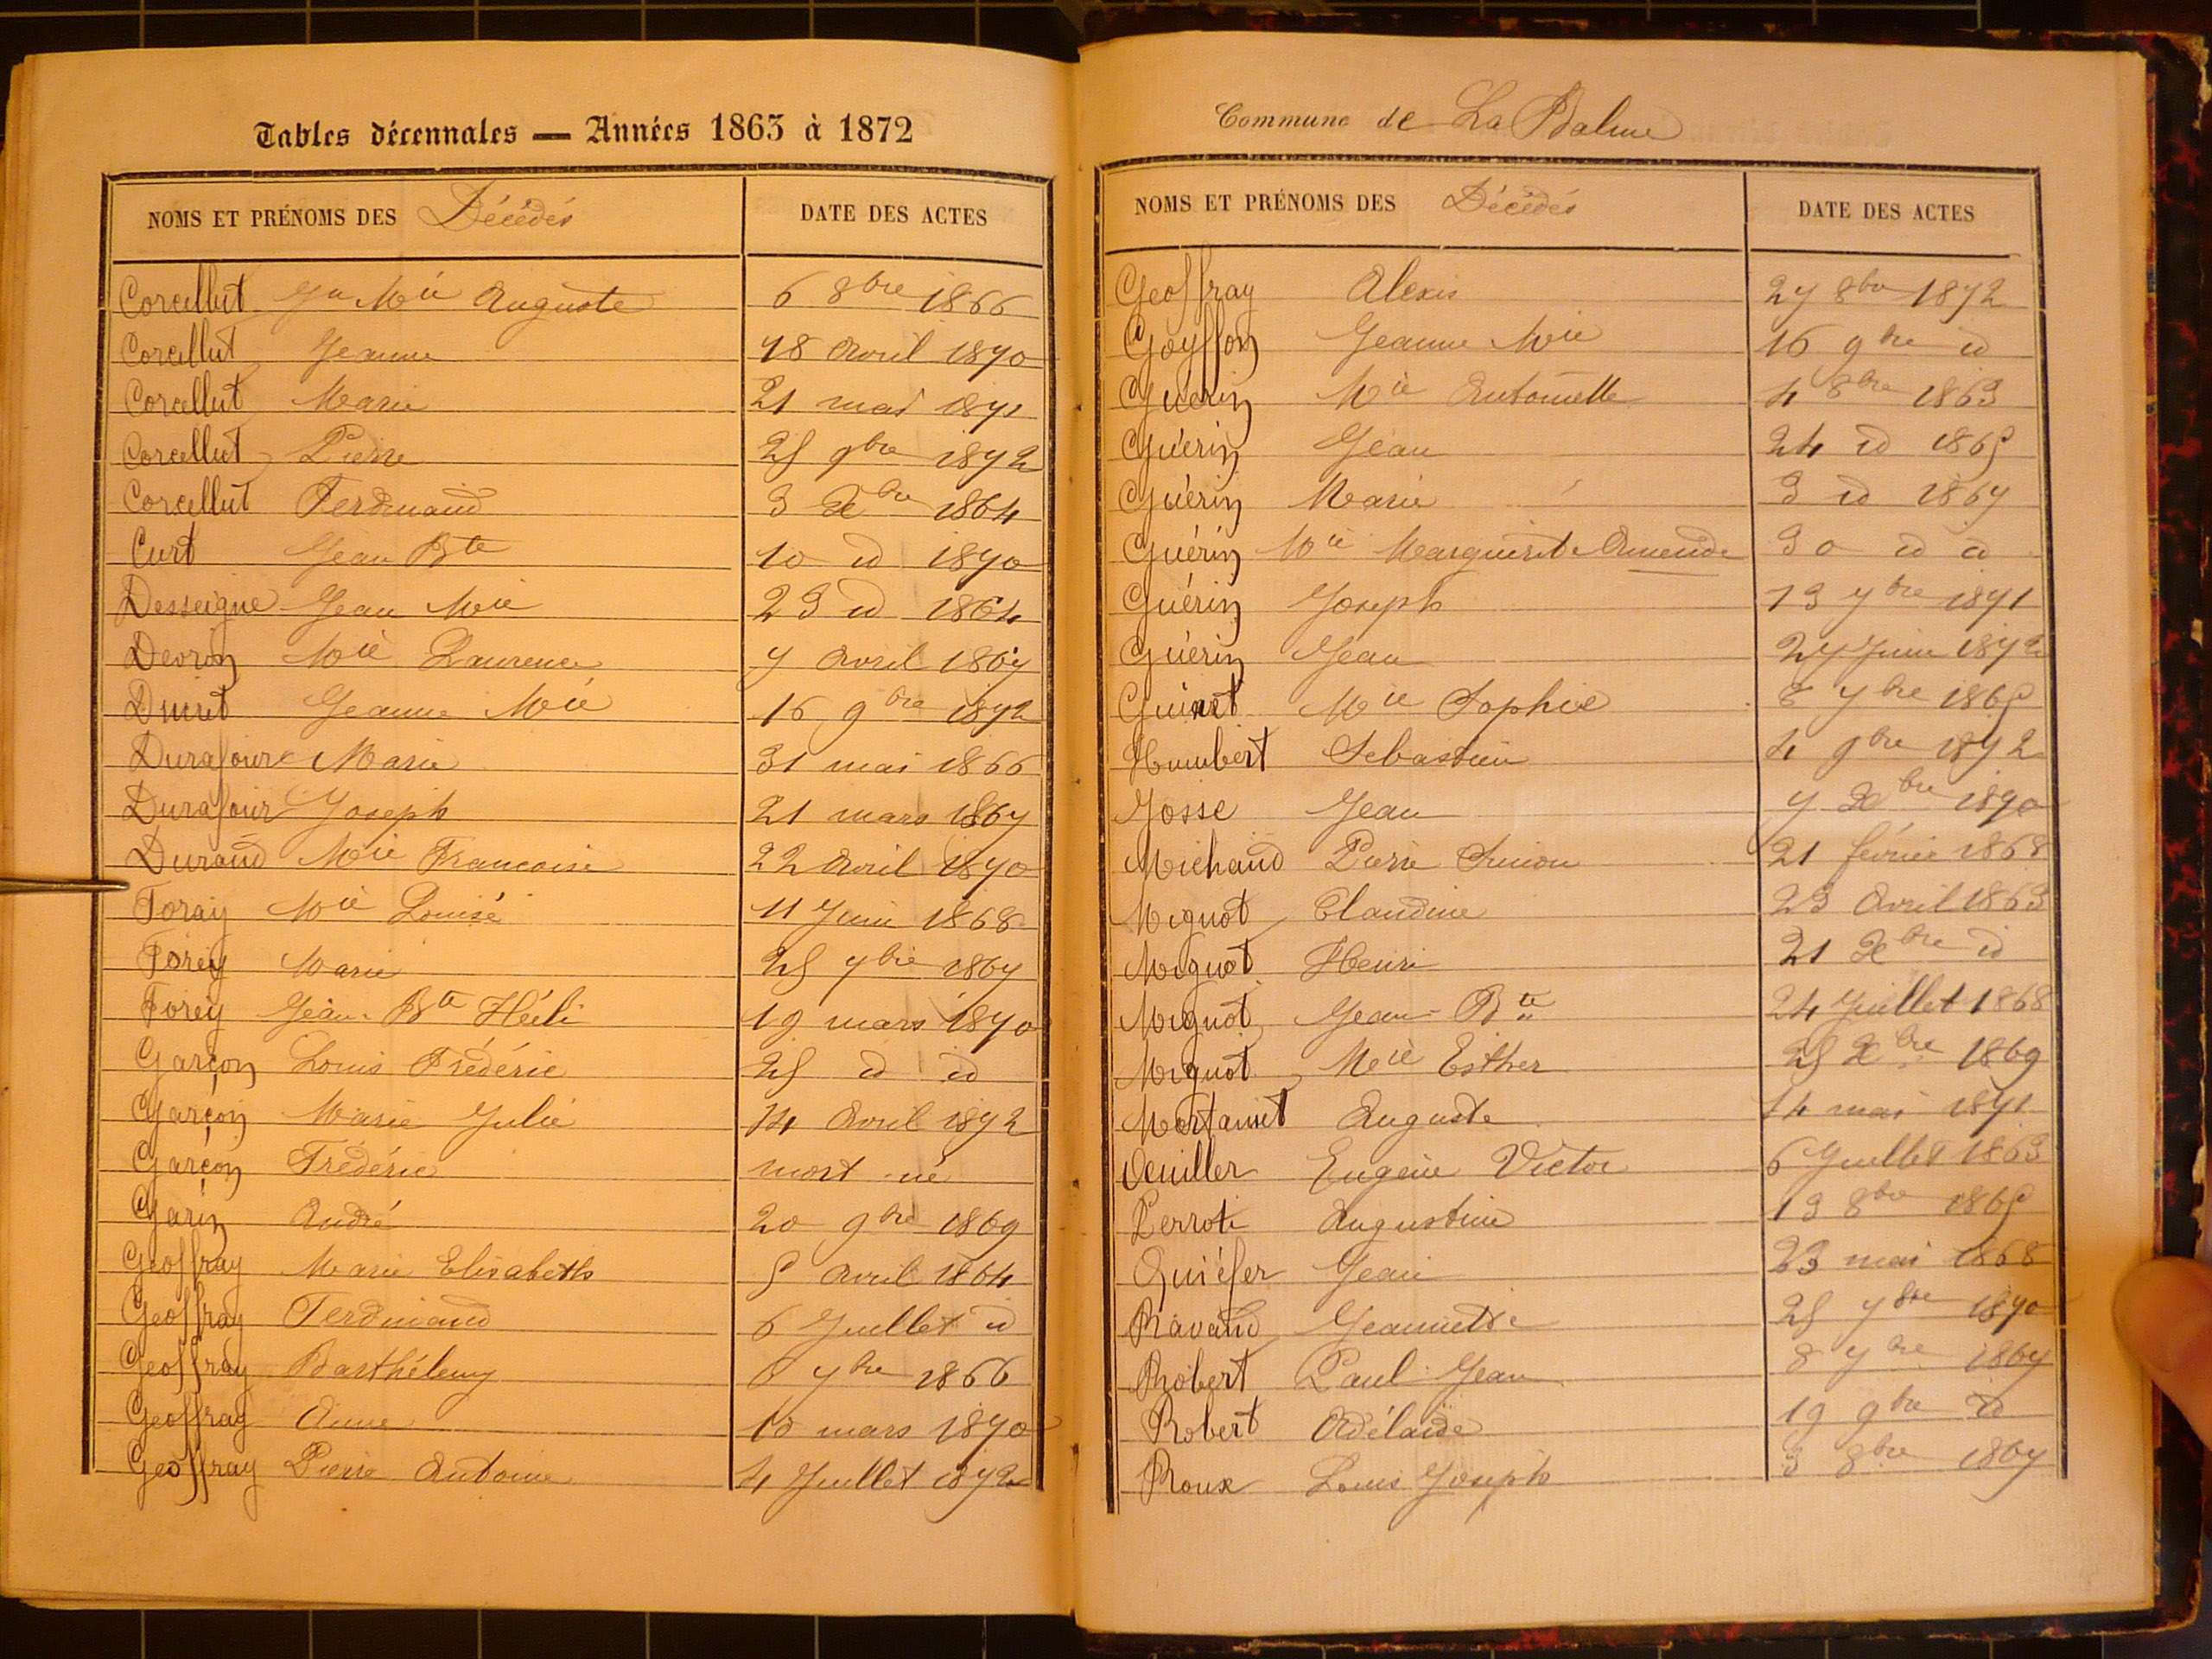 Tables décennales — Années 1863 à 1872
NOMS ET PRÉNOMS DES Décédés DATE DES ACTES
Corcellut Jn Mie Auguste 6 8bre 1866
Corcellut Jeanne 18 Avril 1870
Corcellut Marie 21 mai 1871
Corcellut Pierre 25 9bre 1872
Corcellut Ferdinand 3 Xbre 1864
Curt Jean Bte 10 id 1870
Desseigne Jean Mie 23 id 1864
Devron Mie Laurence 7 Avril 1867
Ducret Jeanne Mie 16 9bre 1872
Durafour Marie 31 mai 1866
Durafour Joseph 21 mars 1867
Durand Mie Francoise 22 Avril 1870
Foray Mie Louise 11 Juin 1868
Forey Marie 25 7bre 1867
Forey Jean Bte Héli 19 mars 1870
Garçon Louis Frédéric 25 id id
Garçon Marie Julie 14 Avril 1872
Garçon Frédéric mort-né
Garin André 20 9bre 1869
Geoffray Marie Elisabeth 5 Avril 1864
Geoffray Ferdinand 6 Juillet id
Geoffray Barthélemy 7bre 1866
Geoffray Anne 10 mars 1870
Geoffray Pierre Antoine 4 Juillet 1872
Commune de La Balme
NOMS ET PRÉNOMS DES Décédés DATE DES ACTES
Geoffray Alexis 27 8bre 1872
Goyffon Jeanne Mie 16 9bre id
Guérin Mie Antoinette 4 8bre 1863
Guérin Jean 24 id 1865
Guérin Marie 3 id 1867
Guérin Mie Marguerite 30 id id
Guérin Joseph 13 7bre 1871
Guérin Jean 27 Juin 1872
Guinet Mie Sophie 8 7bre 1865
Humbert Sebastien 4 9bre 1872
Josse Jean 7 Xbre 1870
Michaud Pierre Simon 21 février 1868
Mignot Claudine 23 Avril 1863
Mignot Henri 21 Xbre id
Mignot Jean-Bte 24 Juillet 1868
Mignot Mie Esther 25 Xbre 1869
Mortamet Auguste 14 mai 1871
Eugène Victor 6 Juillet 1863
Perrot Augustine 13 8bre 1865
Quiéfer Jean 23 mai 1868
Ravaud Jeannette 25 7bre 1870
Robert Paul Jean 8 7bre 1867
Robert Adélaïde 19 9bre id
Roux Louis Joseph 3 8bre 1867